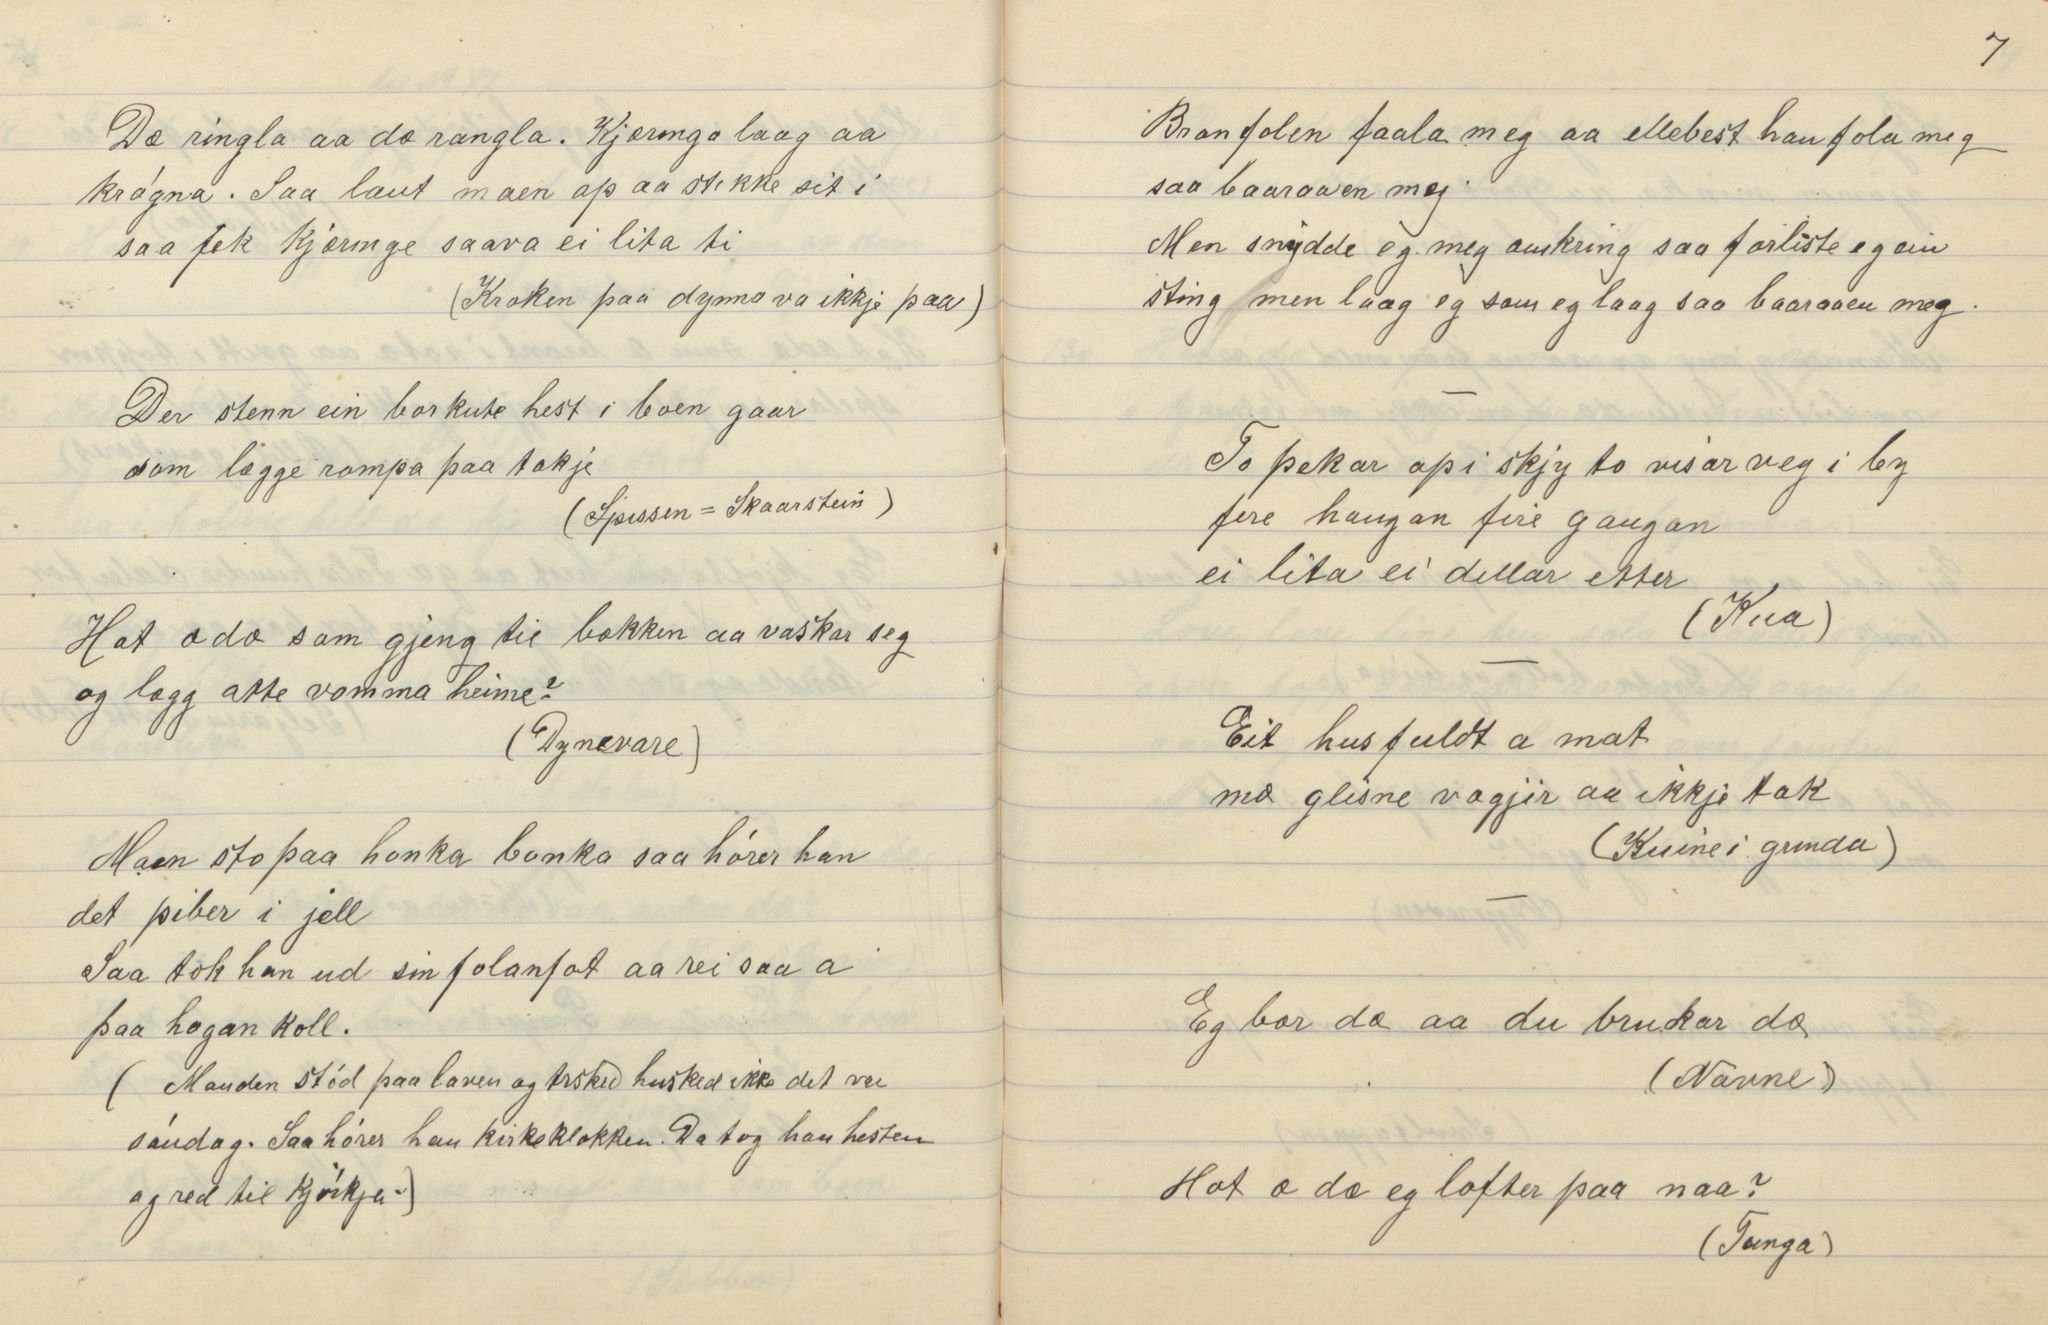 Dæ ringla aa dæ rangla. Kjæringa laag aa
krágna. Saa laut maen op aa stikke sit i
saa fek Kjæringe saava ei lita ti
(Kroken paa dynna va ikkje paa)
Der stenn ein borkute hest i boen gaar
som lægge rompa paa takje
(Spissen = Skaarstein)
Hot æ dæ som gjeng til bækken aa vaskar seg
og lægg atte vomma heime?
(Dynevare)
Maen sto paa honka bonka saa hórer han
det piber i jell
Saa tok han ud sin folanfot aa rei saa a
paa hogan koll.
(Manden stód paa laven og trsked husked ikke det var
sóndag. Saa hórer han kirkeklokken. Da tog han hesten
og red til Kjörkja.)
7
Bronfolen faala meg aa ellebest han fola meg
saa baaraaen meg.
Men snydde eg meg omkring saa forliste eg ein
sting men laag eg som eg laag saa baaraaen meg.
—
To pekar op i skjy to visar veg i by
fire hangan fire gangan
ei lita ei dellar etter
(Kua)
—
Eit hus fuldt a mat
mæ glisne vægjir aa ikkje tak
(Kuine i grinda)
—
Eg bær dæ aa du brukar dæ
(Navne)
Hot æ dæ eg lofter paa naa?
(Tunga)